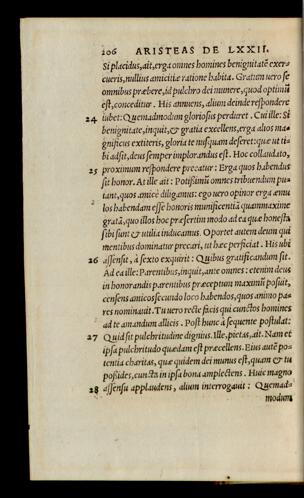 206 ARISTEAS DE LXXII.
Si placidus, ait, erga omnes homines benignitatē exer-
cueris, nullius amicitiæ ratione habita. Gratum uero se
omnibus præbere, id pulchro dei munere, quod optimū
est, conceditur. His annuens, alium deinde respondere
24 iubet: Quemadmodum gloriosus perduret. Cui ille: Si
benignitate, inquit, & gratia excellens, erga alios ma-
gnificus extiteris, gloria te nusquam deseret: quæ ut ti-
bi adsit, deus semper implorandus est. Hoc collaudato,
25 proximum respondere precatur: Erga quos habendus
sit honor. At ille ait: Potissimū omnes tribuendum pu-
tant, quos amicè diligamus: ego uero opinor erga æmu
los habendam esse honoris munificentiā quammaximè
gratā, quo illos hoc præsertim modo ad ea quæ honesta
sibi sunt & utilia inducamus. Oportet autem deum qui
mentibus dominatur precari, ut hæc perficiat. His ubi
26 assensit, à sexto exquirit: Quibus gratificandum sit.
Ad ea ille: Parentibus, inquit, ante omnes: etenim deus
in honorandis parentibus præceptum maximū posuit,
censens amicos secundo loco habendos, quos animo pa-
res nominauit. Tu uero recte facis qui cunctos homines
ad te amandum allicis. Post hunc à sequente postulat:
27 Quid sit pulchritudine dignius. Ille, pietas, ait. Nam et
ipsa pulchritudo quædam est præcellens. Eius autē po-
tentia charitas, quæ quidem dei munus est, quam & tu
possides, cuncta in ipsa bona amplectens. Huic magno
28 assensu applaudens, alium interrogauit: Quemad-
modum